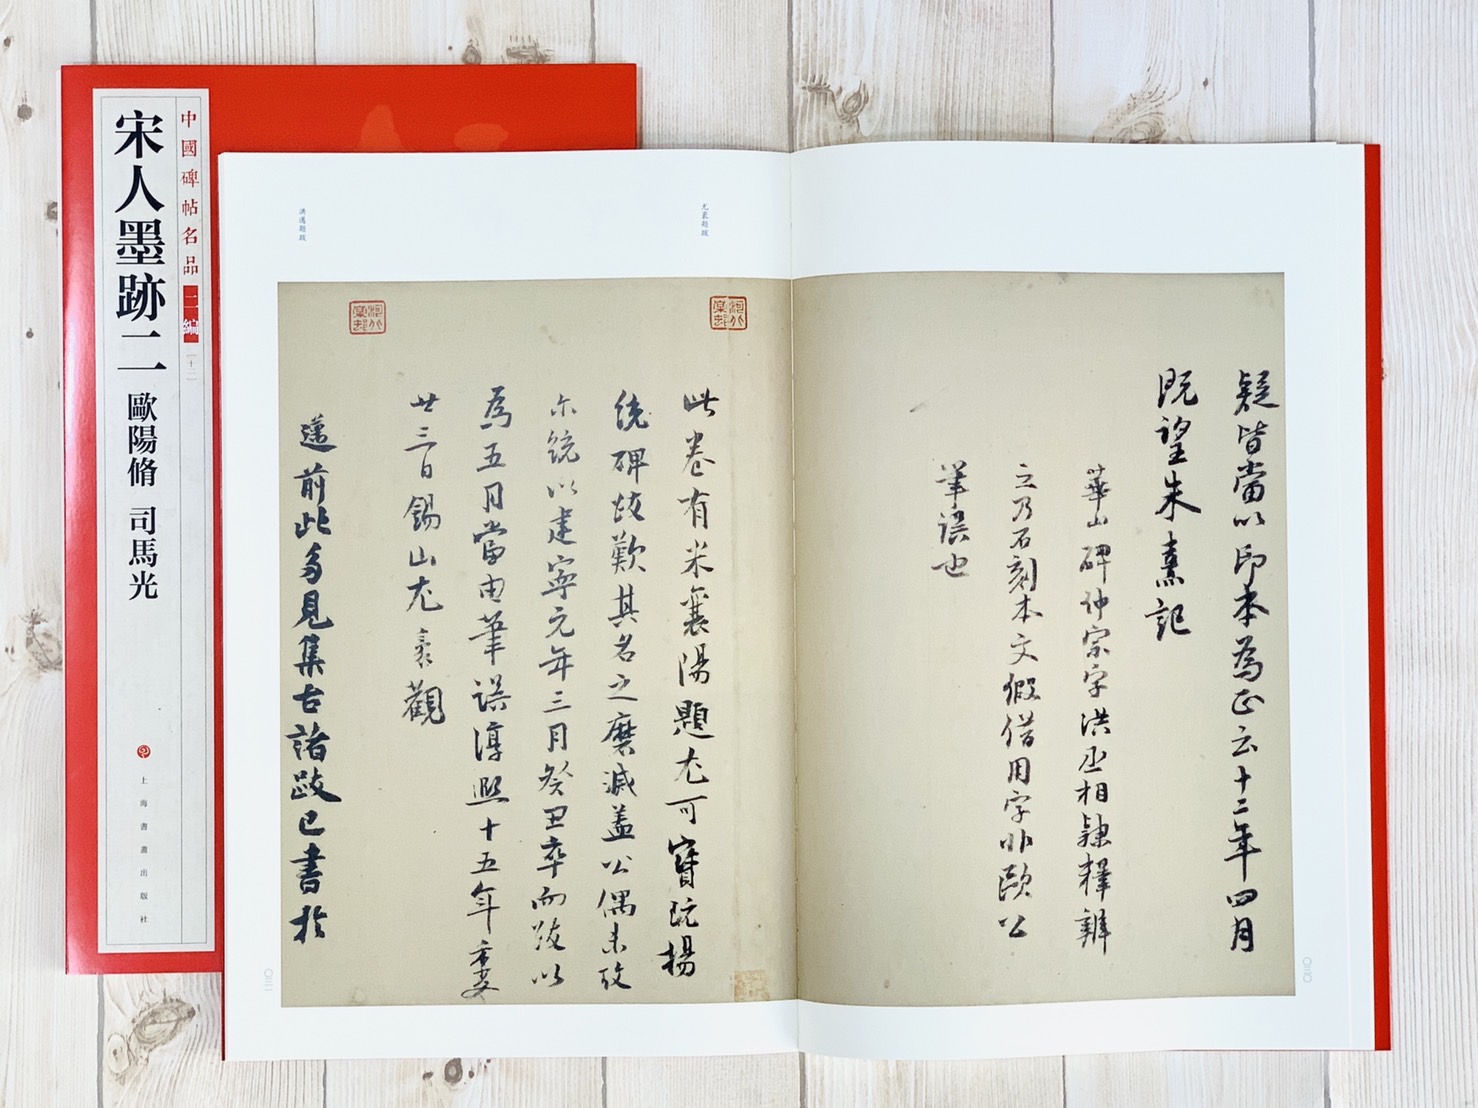 中國碑帖名品
二編
〔十二〕
宋人墨跡二
歐陽脩 司馬光
上海書畫出版社
疑皆當以印本為正云十二年四月
既望朱熹記
華山碑仲宗字洪丞相隸釋辨
之乃石刻本文假借用字非歐公
筆誤也
尤袤題跋
此卷有米襄陽題尤可寶玩楊
統碑跋歎其名之磨滅蓋公偶未攷
尔統以建寧元年三月癸丑卒而跋以
為五月當由筆誤淳熙十五年季夏
廿三日錫山尤袤觀
洪邁題跋
邁前此多見集古諸跋已書於
〇三〇
〇三一